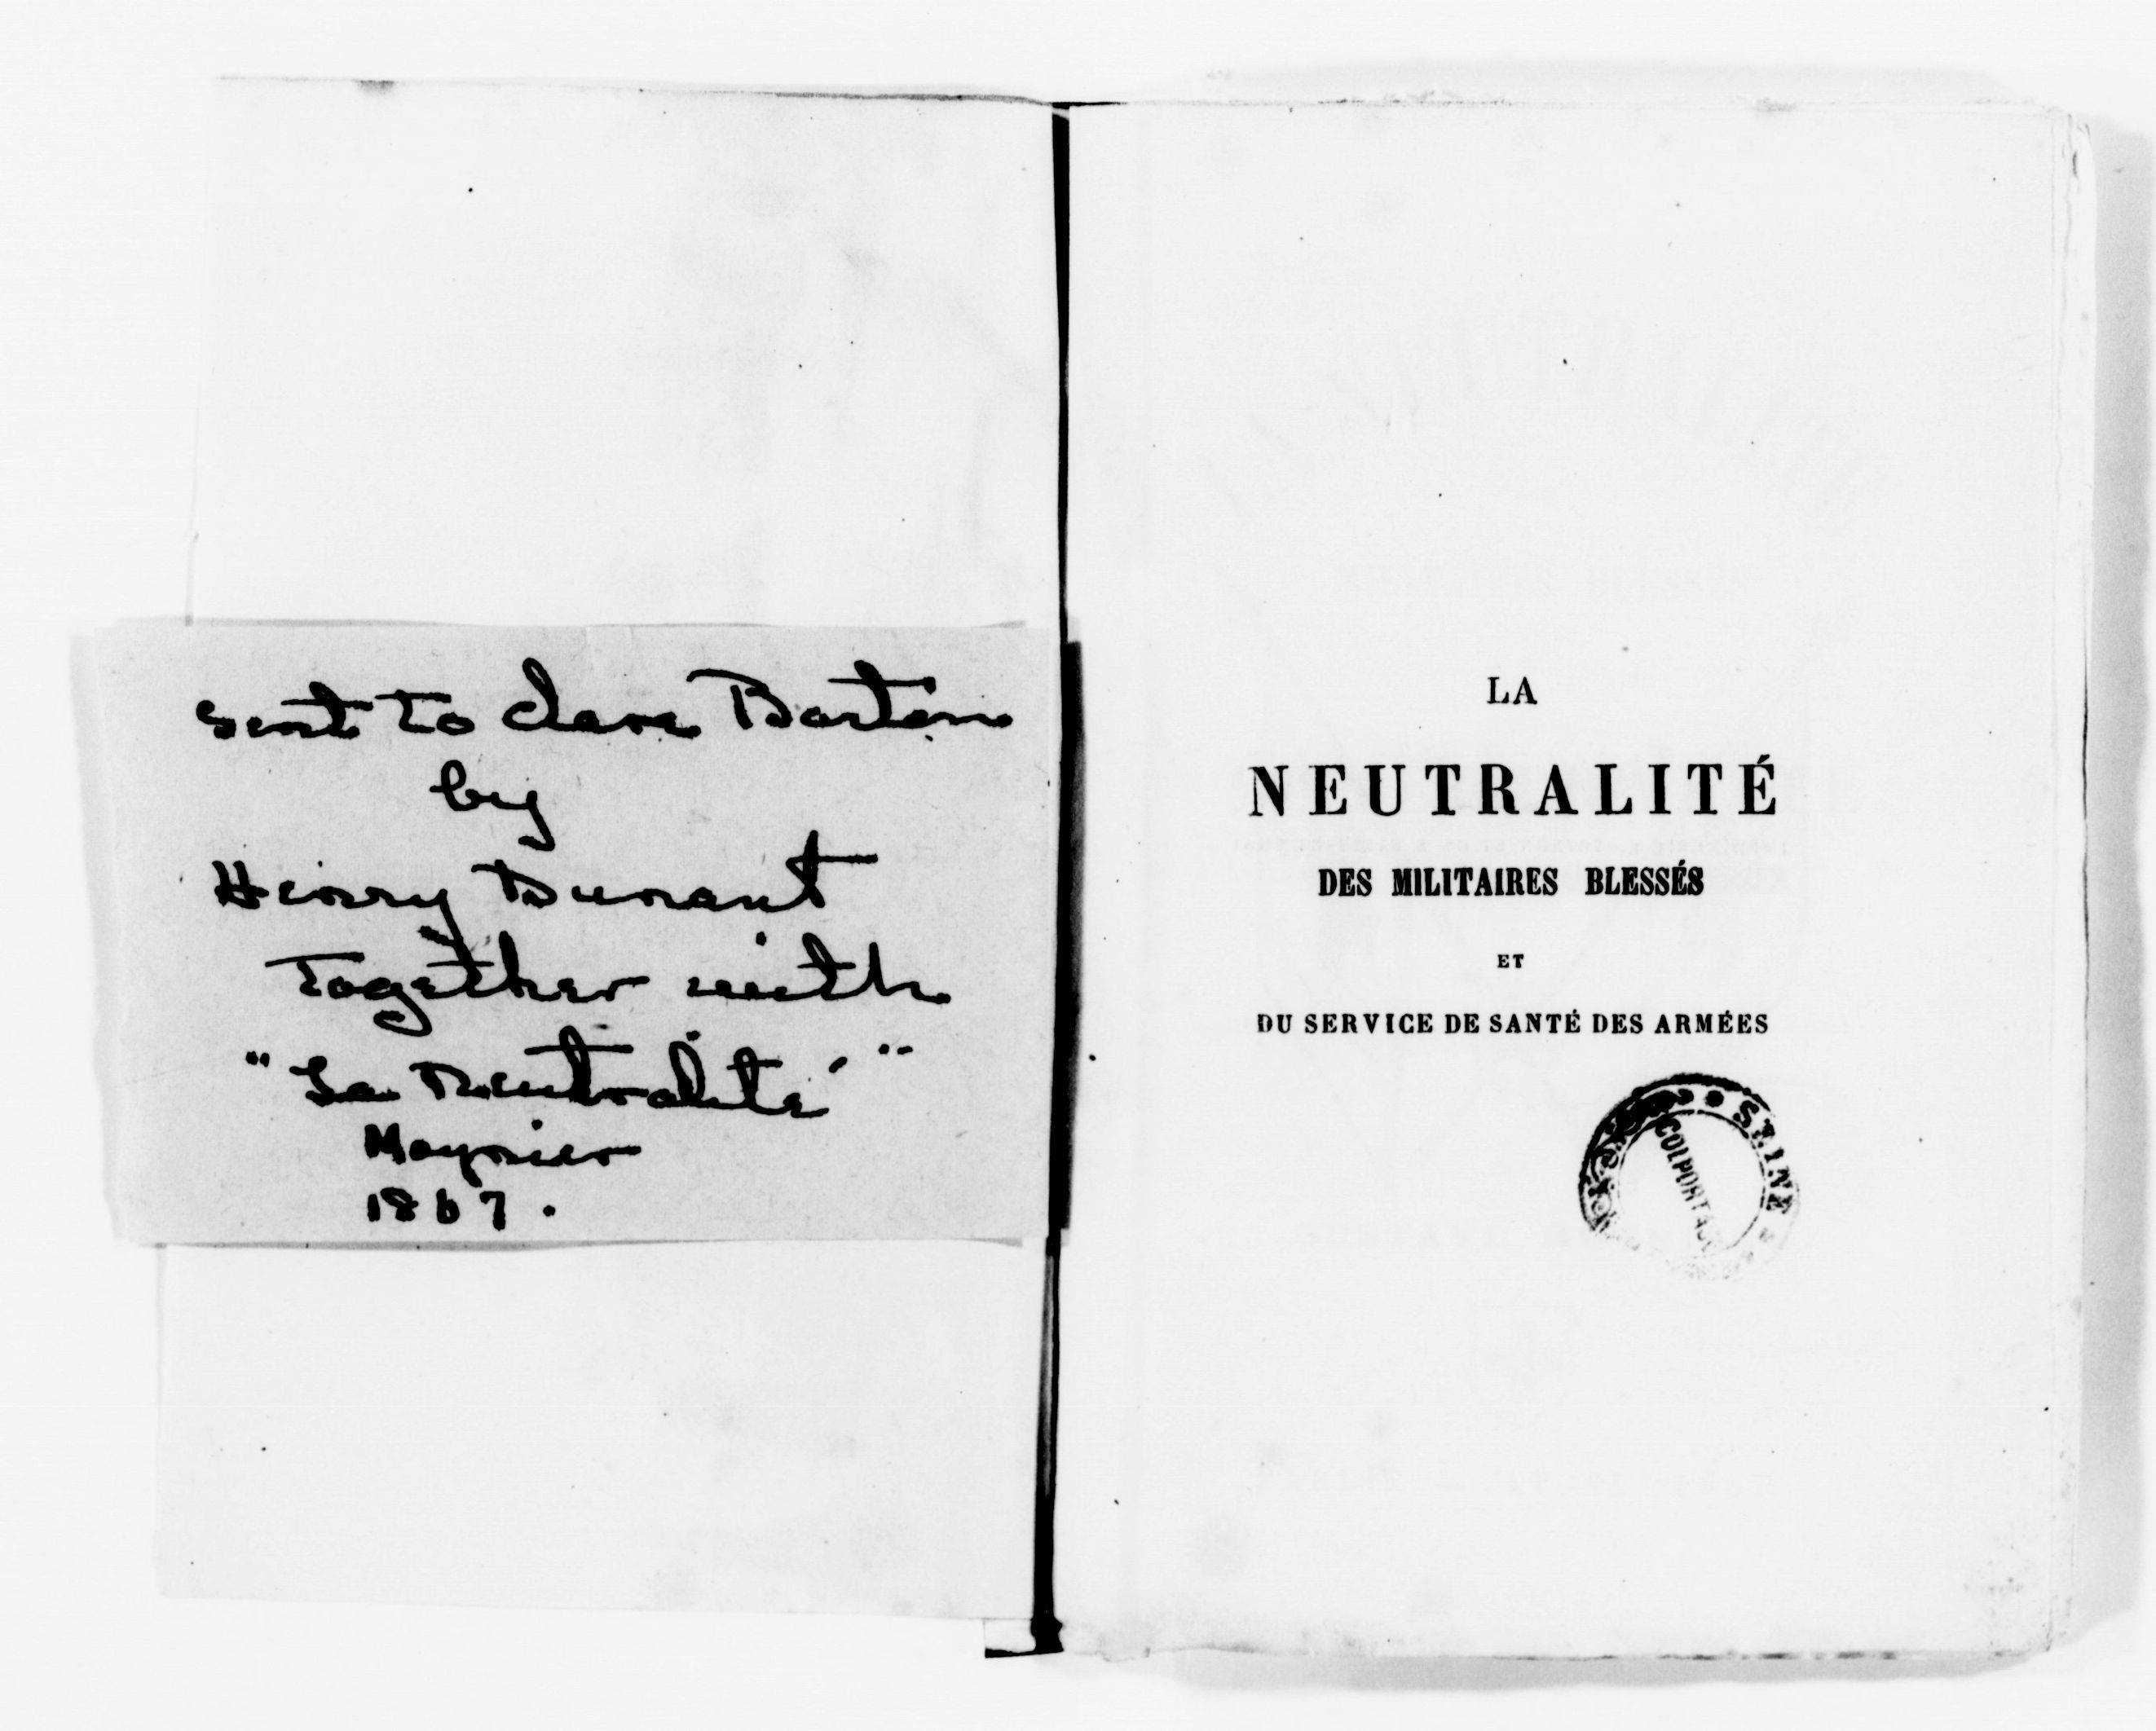 Sent to Clara Barton
by
Henry Dunant
Together with
"La Neutralité"
Moynier
1867.
LA
NEUTRALITÉ
DES MILITAIRES BLESSÉS
ET
DU SERVICE DE SANTÉ DES ARMÉES
SEINE
COLPORTAGE